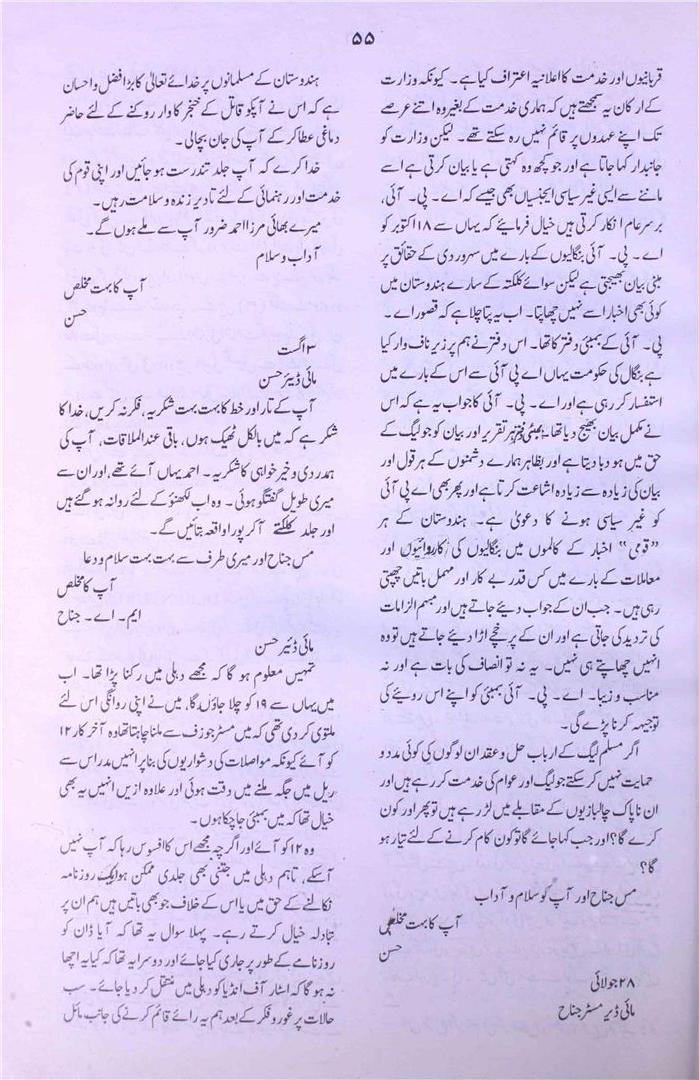 ۵۵
قربانیوں اور خدمت کا اعلانیہ اعتراف کیا ہے۔ کیونکہ وزارت
کے ارکان یہ سمجھتے ہیں کہ ہماری خدمت کے بغیر وہ اتنے عرصے
تک اپنے عہدوں پر قائم نہیں رہ سکتے تھے۔ لیکن وزارت کو
جانبدار کہا جاتا ہے اور جو کچھ وہ کہتی ہے یا بیان کرتی ہے اسے
ماننے سے ایسی غیر سیاسی ایجنسیاں بھی جیسے کہ اے۔ پی۔ آئی،
بر سر عام انکار کرتی ہیں خیال فرمائیے کہ یہاں سے ۱۸ اکتوبر کو
اے۔ پی۔ آئی بنگالیوں کے بارے میں سہروردی کے حقائق پر
مبنی بیان بھیجتی ہے لیکن سوائے کلکتہ کے سارے ہندوستان میں
کوئی بھی اخبار اسے نہیں چھاپتا۔ اب یہ پتا چلا ہے کہ قصور اے۔
پی۔ آئی کے بمبئی دفتر کا تھا۔ اس دفتر نے ہم پر زیر ناف وار کیا
ہے بنگال کی حکومت یہاں اے پی آئی سے اس کے بارے میں
استفسار کر رہی ہے اور اے۔ پی۔ آئی کا جواب یہ ہے کہ اس
نے مکمل بیان بھیج دیا تھا۔ بمبئی دفتر ہر تقریر اور بیان کو جو لیگ کے
حق میں ہو دبا دیتا ہے اور بظاہر ہمارے دشمنوں کے ہر قول اور
بیان کی زیادہ سے زیادہ اشاعت کرتا ہے اور پھر بھی اے پی آئی
کو غیر سیاسی ہونے کا دعویٰ ہے۔ ہندوستان کے ہر
”قومی“ اخبار کے کالموں میں بنگالیوں کی کارروائیوں اور
معاملات کے بارے میں کس قدر بے کار اور مہمل باتیں چھپتی
رہی ہیں۔ جب ان کے جواب دیئے جاتے ہیں اور مبہم الزامات
کی تردید کی جاتی ہے اور ان کے پرخچے اڑا دیئے جاتے ہیں تو وہ
انہیں چھاپتے ہی نہیں۔ یہ نہ تو انصاف کی بات ہے اور نہ
مناسب و زیبا۔ اے۔ پی۔ آئی بمبئی کو اپنے اس رویئے کی
توجیہہ کرنا پڑے گی۔
اگر مسلم لیگ کے ارباب حل و عقد ان لوگوں کی کوئی مدد و
حمایت نہیں کر سکتے جو لیگ اور عوام کی خدمت کر رہے ہیں اور
ان ناپاک چالبازیوں کے مقابلے میں لڑ رہے ہیں تو پھر اور کون
کرے گا؟ اور جب کہا جائے گا تو کون کام کرنے کے لئے تیار ہو
گا؟
مس جناح اور آپ کو سلام و آداب
آپ کا بہت مخلص
حسن
۲۸ جولائی
مائی ڈیر مسٹر جناح
ہندوستان کے مسلمانوں پر خدائے تعالیٰ کا بڑا فضل و احسان
ہے کہ اس نے آپکو قاتل کے خنجر کا وار روکنے کے لئے حاضر
دماغی عطا کر کے آپ کی جان بچالی۔
خدا کرے کہ آپ جلد تندرست ہو جائیں اور اپنی قوم کی
خدمت اور رہنمائی کے لئے تادیر زندہ و سلامت رہیں۔
میرے بھائی مرزا احمد ضرور آپ سے ملے ہوں گے۔
آداب و سلام
آپ کا بہت مخلص
حسن
۳ اگست
مائی ڈیئر حسن
آپ کے تار اور خط کا بہت بہت شکریہ، فکر نہ کریں، خدا کا
شکر ہے کہ میں بالکل ٹھیک ہوں، باقی عند الملاقات، آپ کی
ہمدردی و خیر خواہی کا شکریہ۔ احمد یہاں آئے تھے، اور ان سے
میری طویل گفتگو ہوئی۔ وہ اب لکھنؤ کے لئے روانہ ہو گئے ہیں
اور جلد کلکتے آکر پورا واقعہ بتائیں گے۔
مس جناح اور میری طرف سے بہت بہت سلام و دعا
آپ کا مخلص
ایم۔ اے۔ جناح
مائی ڈئیر حسن
تمہیں معلوم ہو گا کہ مجھے دہلی میں رکنا پڑا تھا۔ اب
میں یہاں سے ۱۹ کو چلا جاؤں گا، میں نے اپنی روانگی اس لئے
ملتوی کر دی تھی کہ میں مسٹر جوزف سے ملنا چاہتا تھا وہ آخر کار ۱۲
کو آئے کیونکہ مواصلات کی دشواریوں کی بنا پر انہیں مدراس سے
ریل میں جگہ ملنے میں دقت ہوئی اور علاوہ ازیں انہیں یہ بھی
خیال تھا کہ میں بمبئی جا چکا ہوں۔
وہ ۱۲ کو آئے اور اگرچہ مجھے اس کا افسوس رہا کہ آپ نہیں
آسکے، تاہم دہلی میں جتنی بھی جلدی ممکن ہو ایک روزنامہ
نکالنے کے حق میں یا اس کے خلاف جو بھی باتیں ہیں ہم ان پر
تبادلہ خیال کرتے رہے۔ پہلا سوال یہ تھا کہ آیا ڈان کو
روزنامے کے طور پر جاری کیا جائے اور دوسرا یہ تھا کہ کیا یہ اچھا
نہ ہو گا کہ اسٹار آف انڈیا کو دہلی میں منتقل کر دیا جائے۔ سب
حالات پر غور و فکر کے بعد ہم یہ رائے قائم کرنے کی جانب مائل